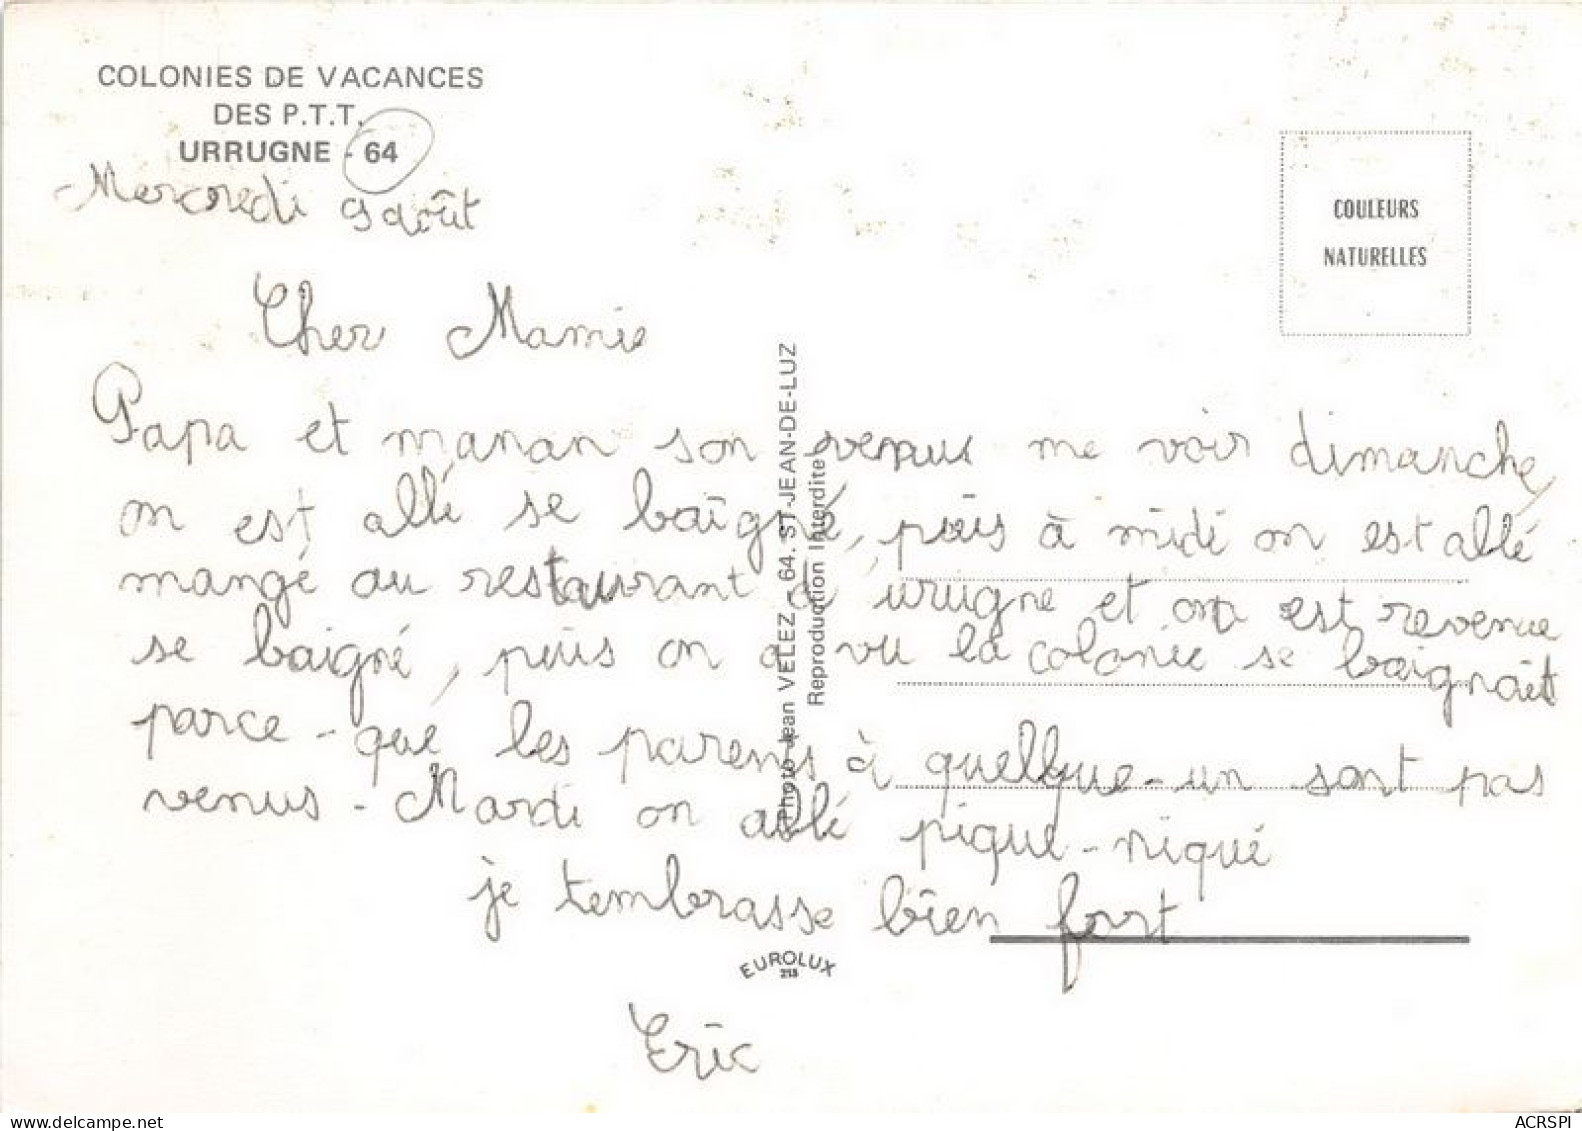 COLONIES DE VACANCES
DES P.T.T.
URRUGNE - 64
Mercredi 9 août
COULEURS
NATURELLES
Cher Mamie
Papa et manan son venus me voir dimanche,
on est allé se baîgné, puis à midi on est allé
mangé au restaurant d'urugne et on est revenue
se baigné, puis on a vu la colonie se baignait
parce-que les parents à quellque-un sont pas
venus - Mardi on allé pique-niqué
je tembrasse bien fort
Eric
Photo Jean VELEZ - 64. ST-JEAN-DE-LUZ
Reproduction Interdite
EUROLUX
213
www.delcampe.net
ACRSPI